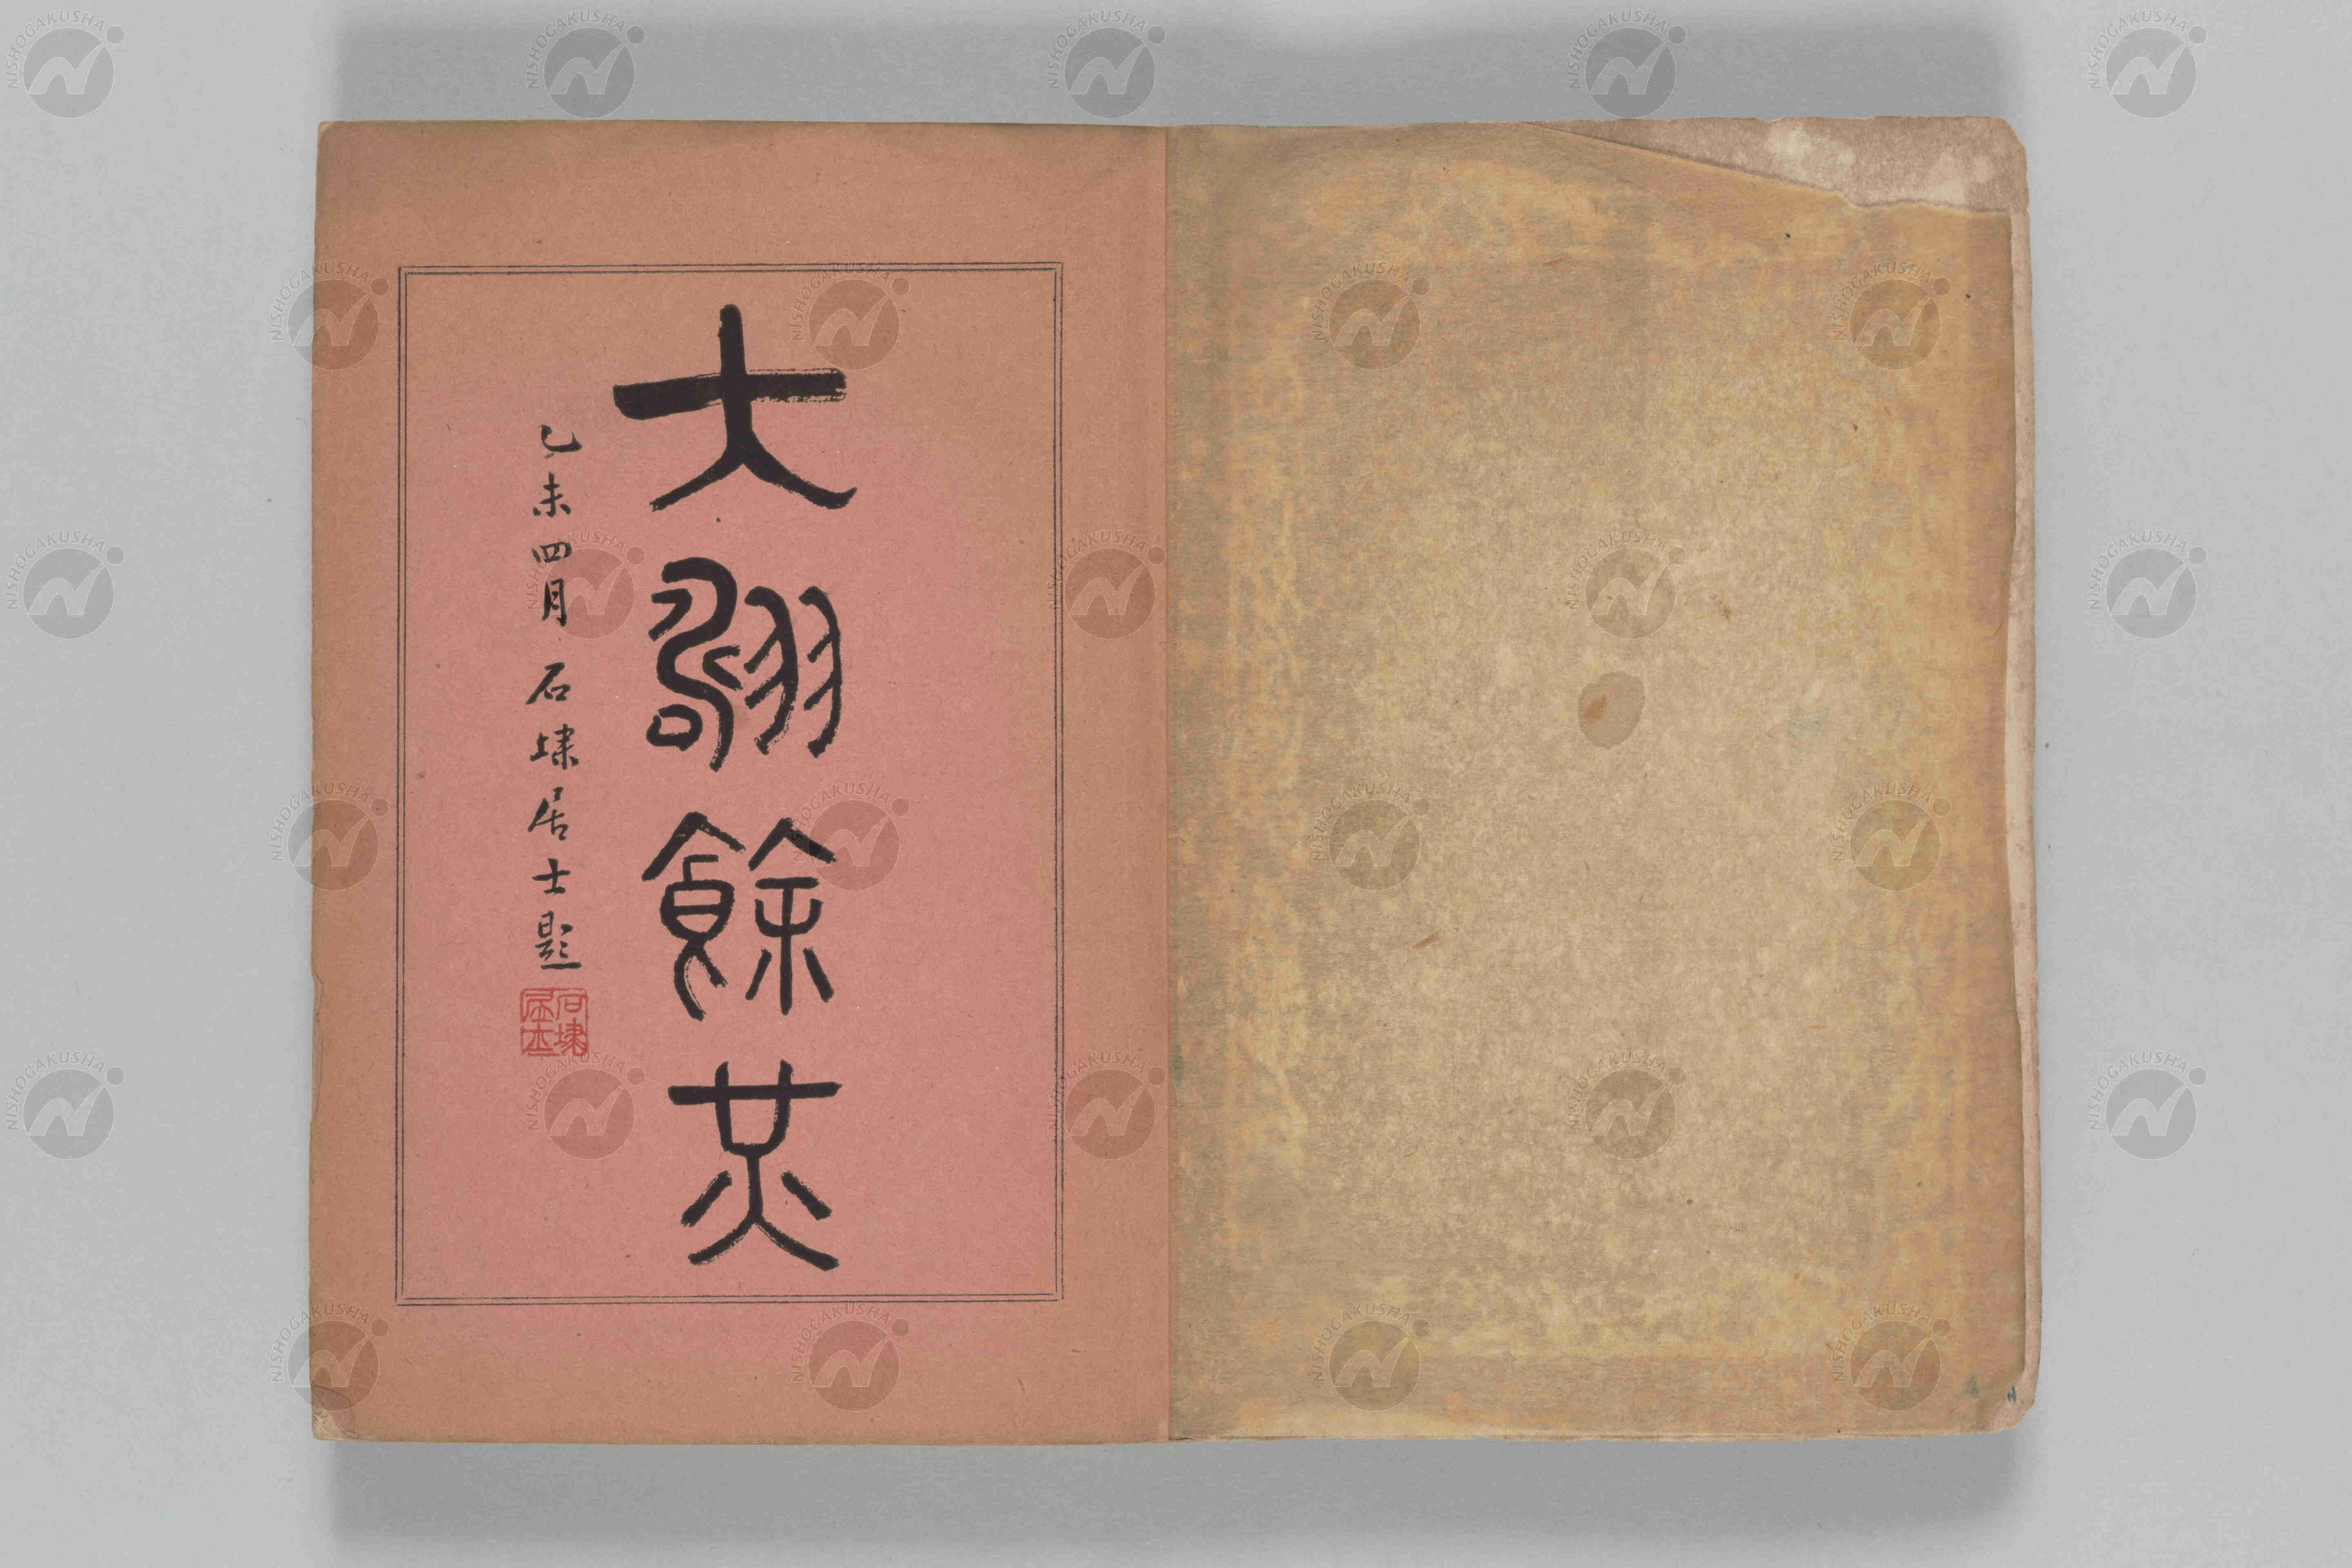 大餘炗
乙未四月 石埭居士題
石埭居士
NISHOGAKUSHA